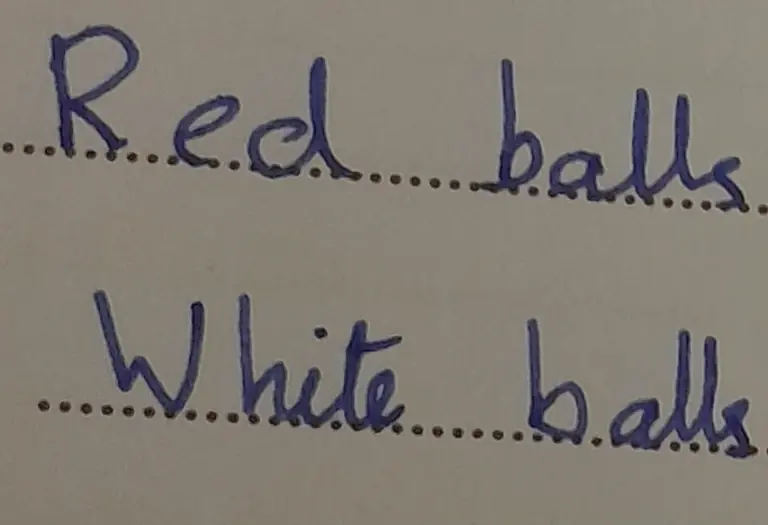 Red balls
White balls